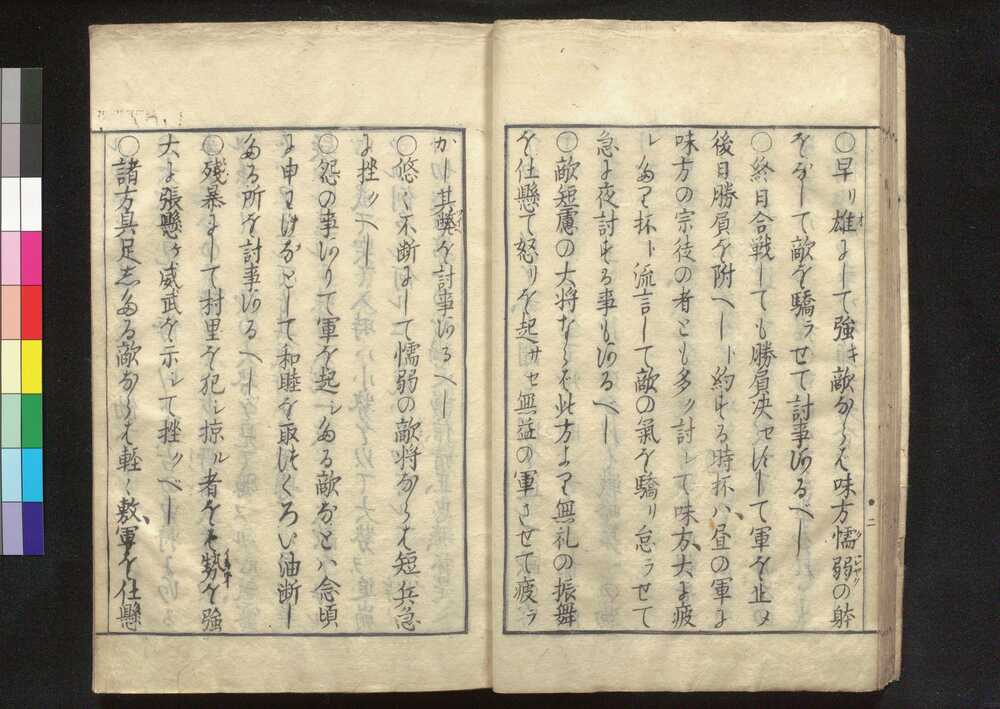 ○早リ雄にして強キ敵ならは味方懦弱の躰
をなして敵を驕ラせて討事有るべし
○終日合戦しても勝負決セすして軍を止メ
後日勝負を附へしト約する時抔ハ昼の軍に
味方の宗徒の者とも多ク討レて味方大に疲
レたり抔ト流言して敵の氣を驕リ怠ラせて
急に夜討する事も有るべし
○敵短慮の大将ならは此方より無礼の振舞
を仕懸て怒リを起サセ無益の軍させて疲ラ
かし其弊を討事有るへし
○悠々不断にして懦弱の敵将ならは短兵急
に挫クへし
○怨の事有りて軍を起シたる敵なとハ念頃
に申わけなとして和睦を取つくろい油断し
たる所を討事有るへし
○残暴にして村里を犯シ掠ル者をは勢を強
大に張懸ケ威武を示シて挫クべし
○諸方具足したる敵ならは軽々敷軍を仕懸
二